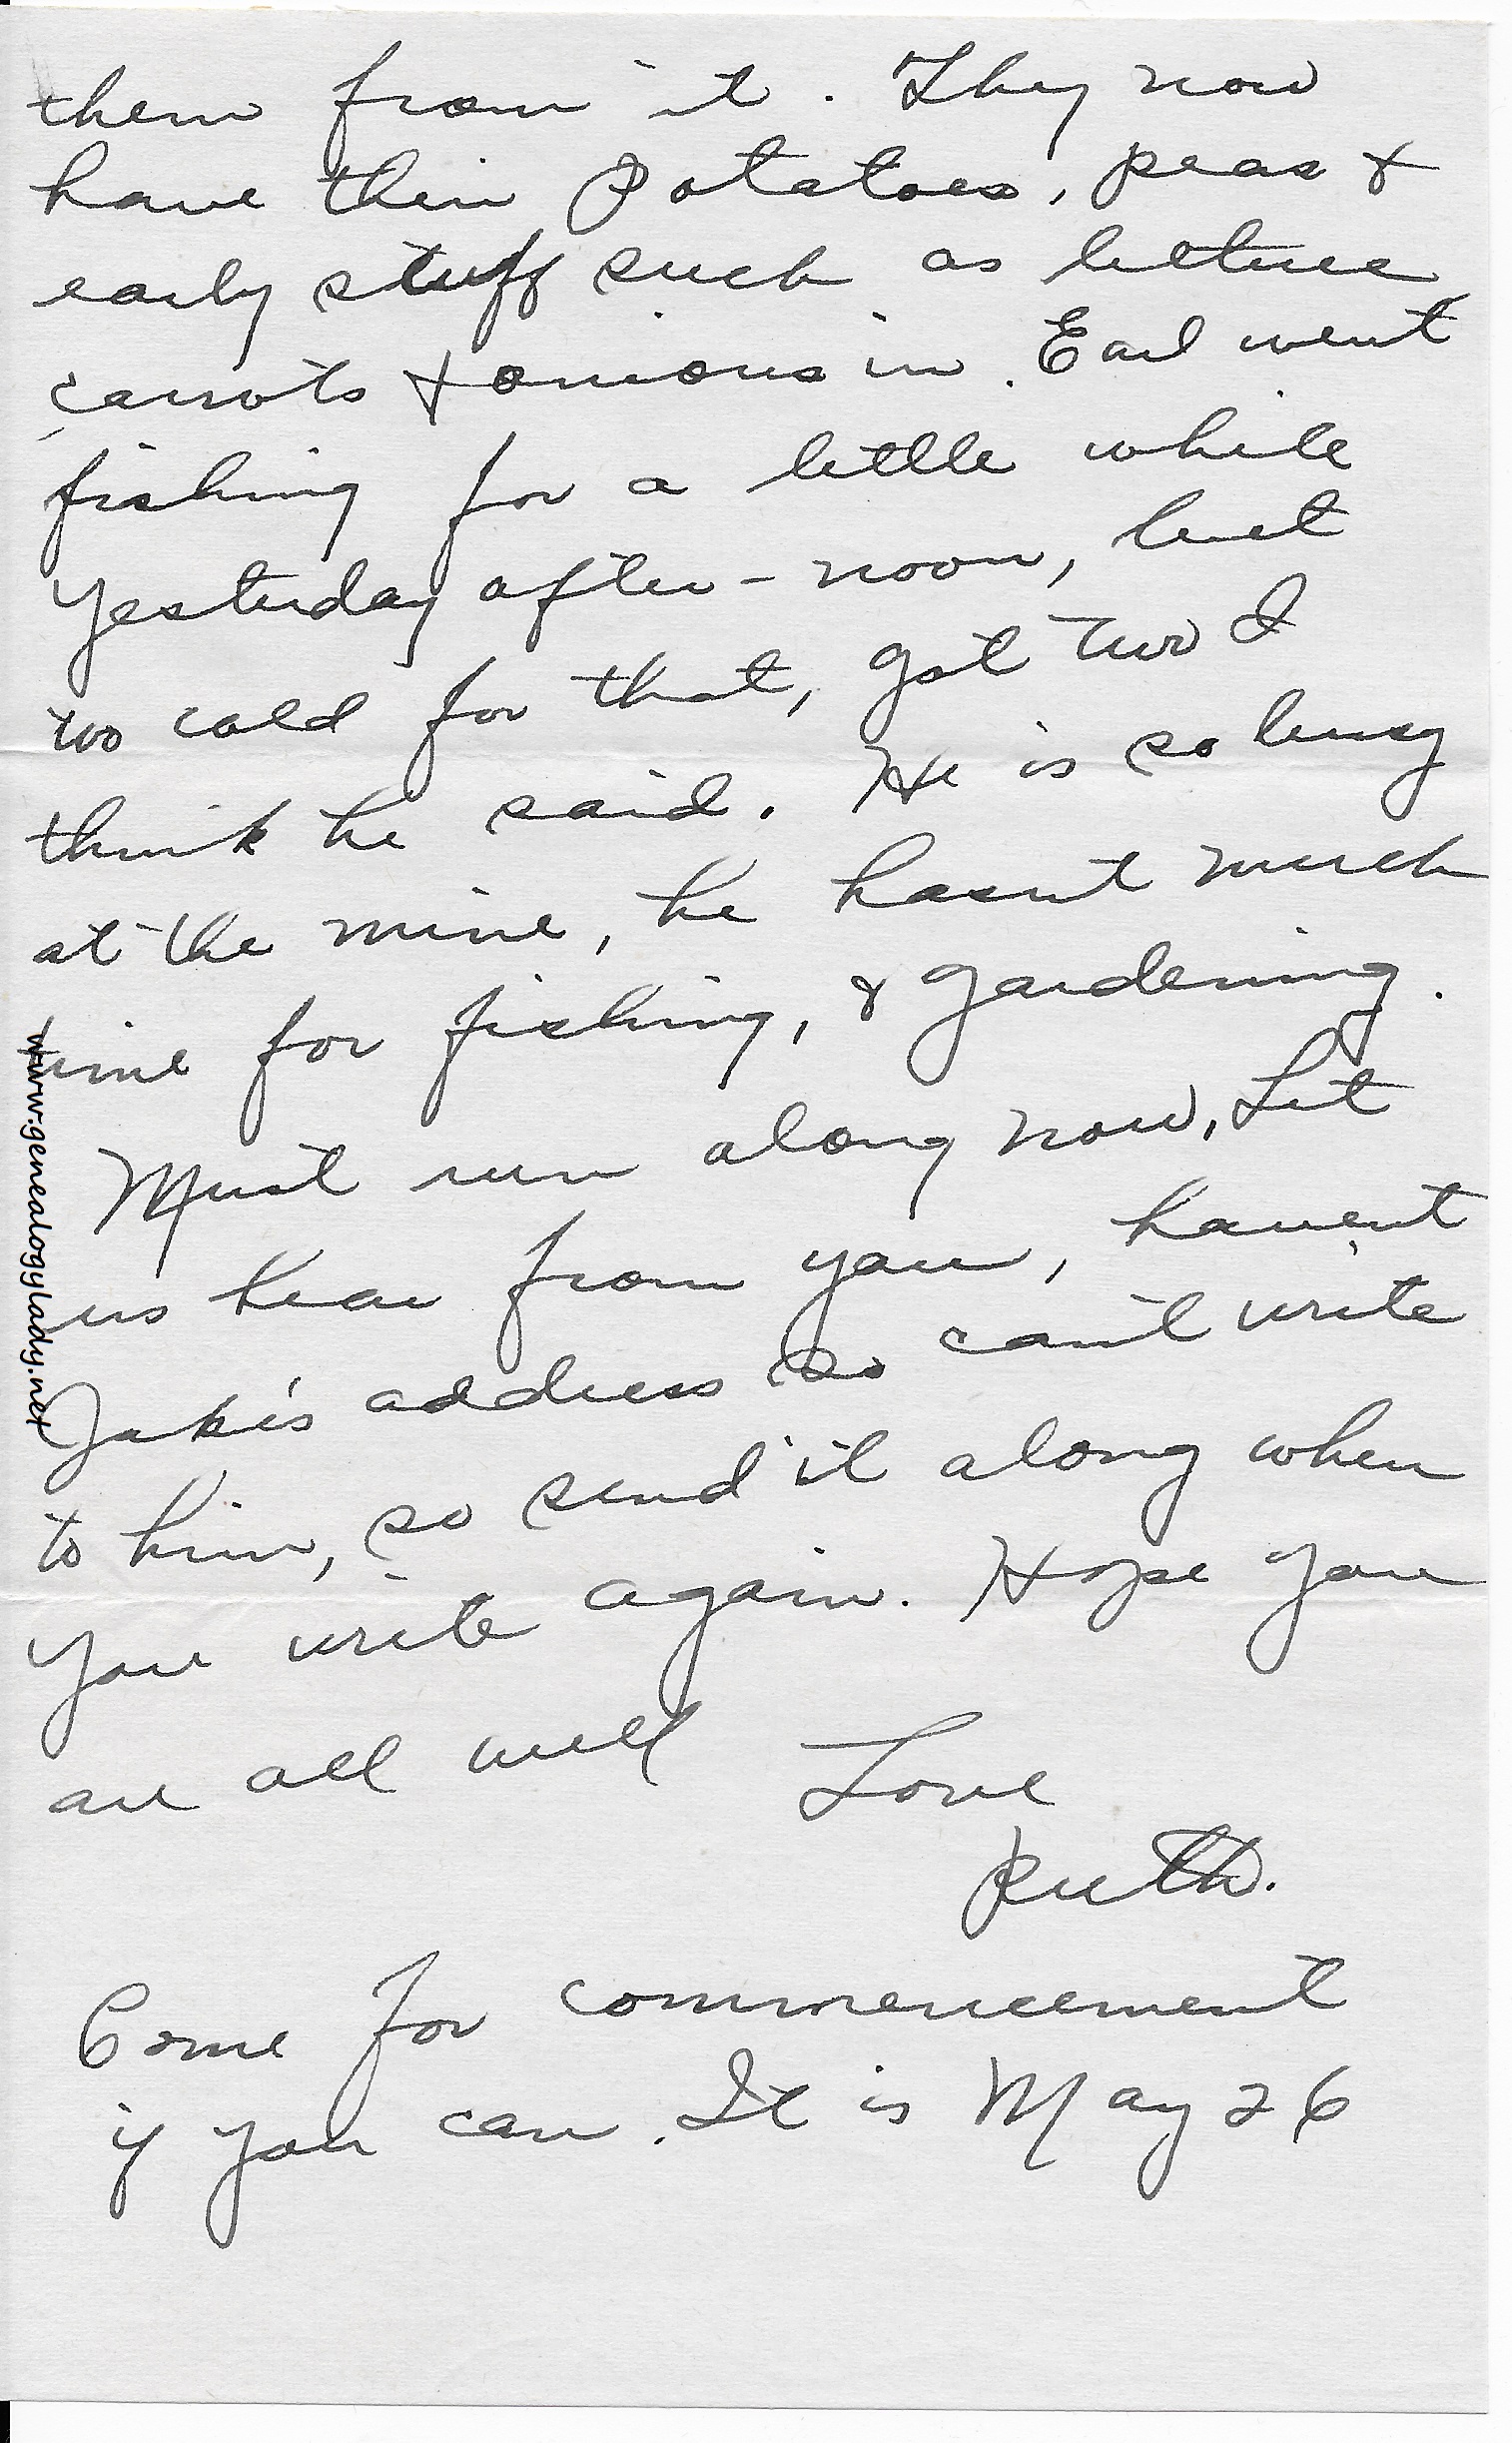 them from it. They now
have their Potatoes, peas &
early stuff such as lettuce
carrots & onions in. Earl went
fishing for a little while
Yesterday after-noon, but
too cold for that, got two I
think he said. He is so busy
at the mine, he hasn't much
time for fishing, & gardening.
Must run along now, Let
us hear from you, haven't
Jake's address so can't write
to him, so send it along when
you write again. Hope you
are all well
Love
Ruth.
Come for commencement
if you can. It is May 26
www.genealogylady.net